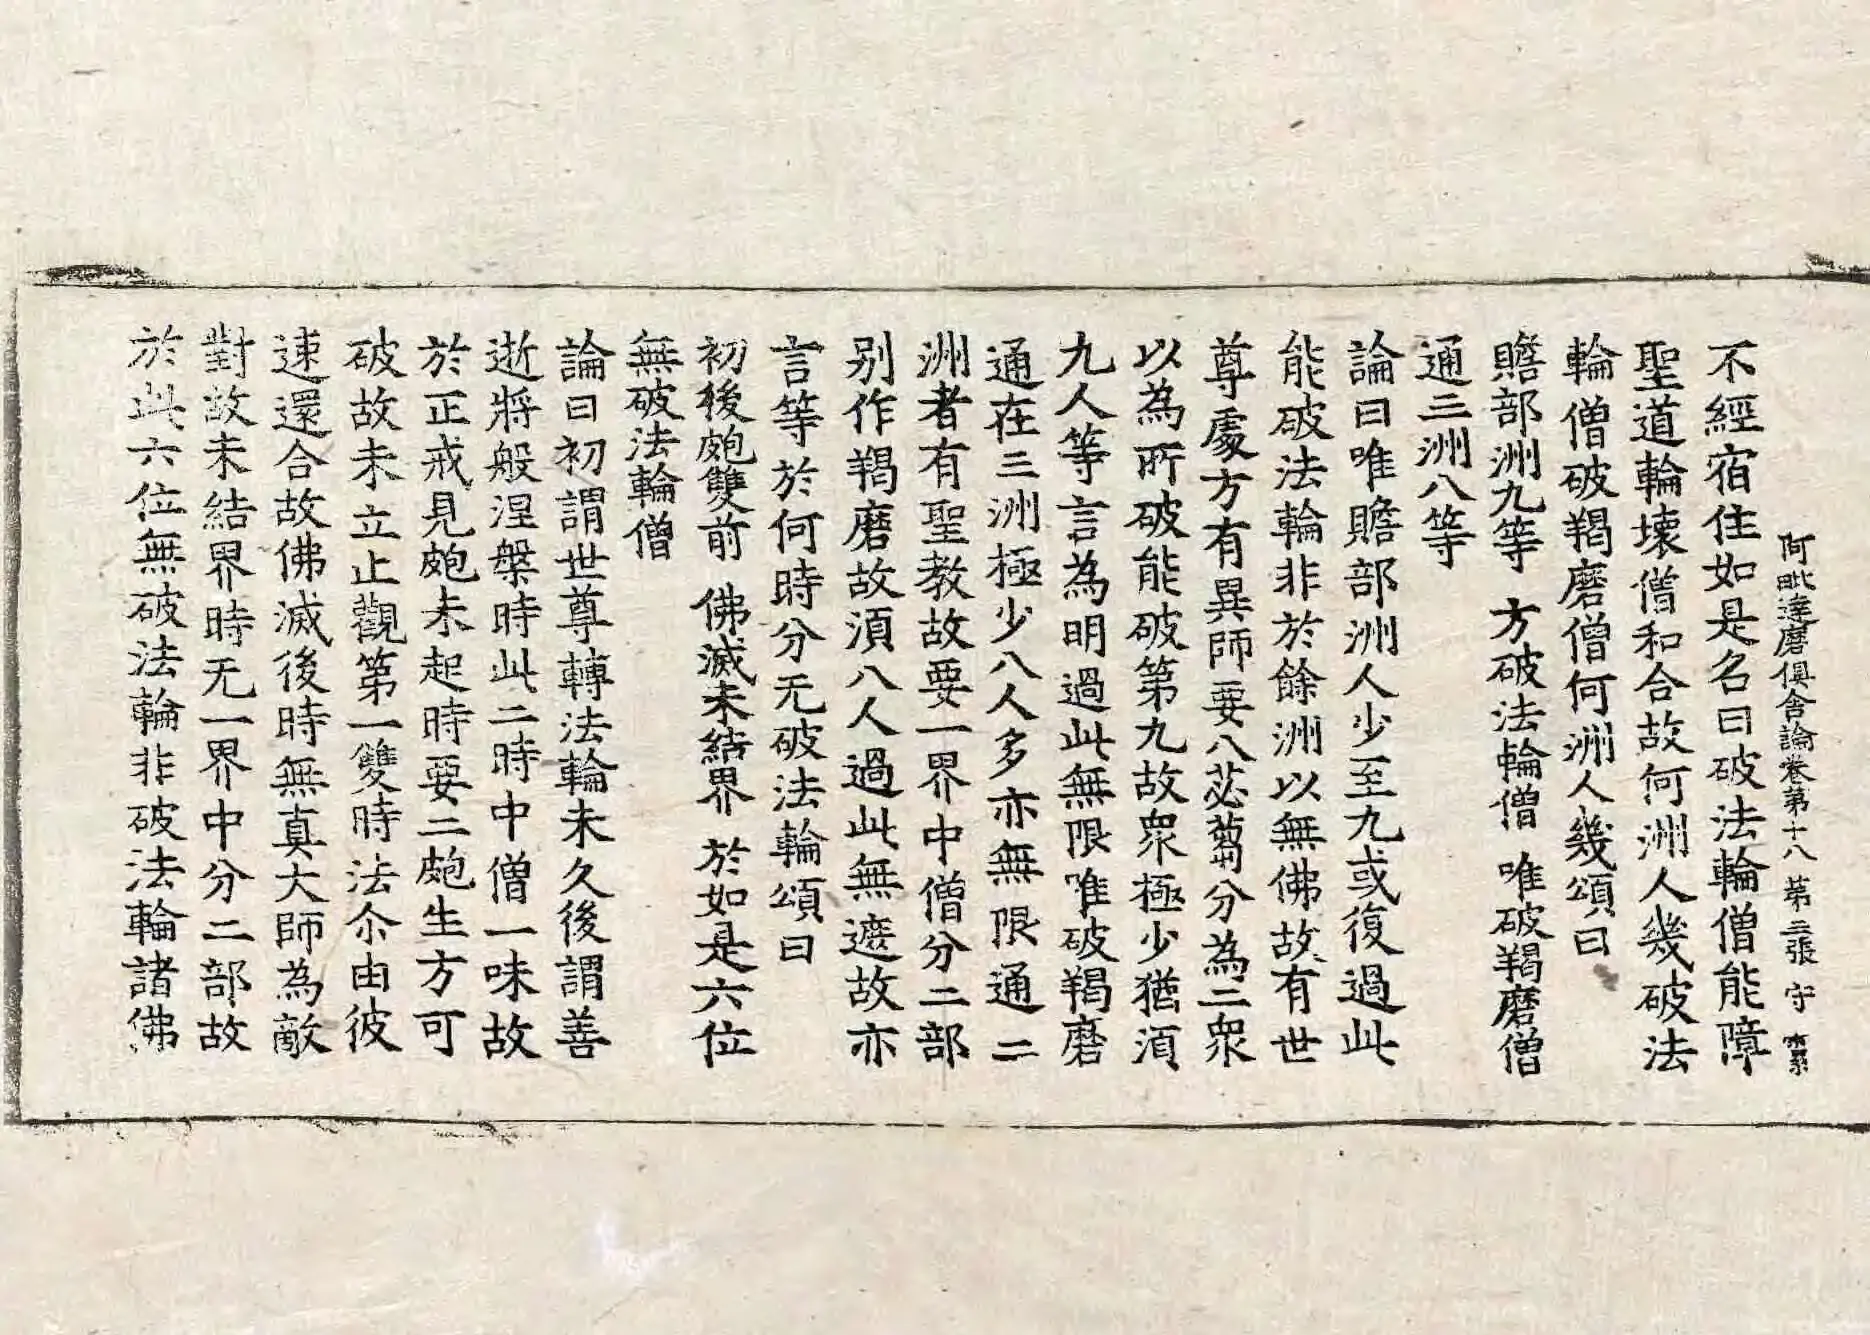 阿毗達磨俱舍論卷第十八　第三張　守
不經宿住如是名曰破法輪僧能障
聖道輪壞僧和合故何洲人幾破法
輪僧破羯磨僧何洲人幾頌曰
贍部洲九等　方破法輪僧　唯破羯磨僧
通三洲八等
論曰唯贍部洲人少至九或復過此
能破法輪非於餘洲以無佛故有世
尊處方有異師要八苾蒭分為二衆
以為所破能破第九故衆極少猶湏
九人等言為明過此無限唯破羯磨
通在三洲極少八人多亦無限通二
洲者有聖教故要一界中僧分二部
别作羯磨故湏八人過此無遮故亦
言等於何時分无破法輪頌曰
初後皰雙前　佛滅未結界　於如是六位
無破法輪僧
論曰初謂世尊轉法輪未久後謂善
逝將般涅槃時此二時中僧一味故
於正戒見皰未起時要二皰生方可
破故未立止觀第一雙時法尒由彼
速還合故佛滅後時無真大師為敵
對故未結界時无一界中分二部故
於此六位無破法輪非破法輪諸佛